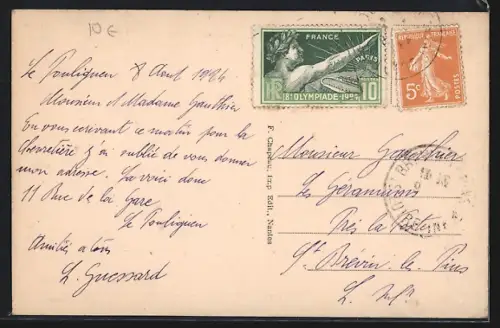 10€
Le Pouliguen 8 Aout 1924
Monsieur et Madame Gauthier
En vous ecrivant ce matin pour la
j'ai oublié de vous donner
mon adresse. La voici donc
11 Rue de la Gare
Le Pouliguen
Amitiés a tous
L. Guessard
F. Chapeau, Imp. Edit., Nantes
FRANCE
PARIS
RF
8e OLYMPIADE 1924
10
REPUBLIQUE FRANÇAISE
5c
POSTES
Monsieur Gauthier
Les Géraniums
Près la Poste
St Brévin les Pins
L. Infre